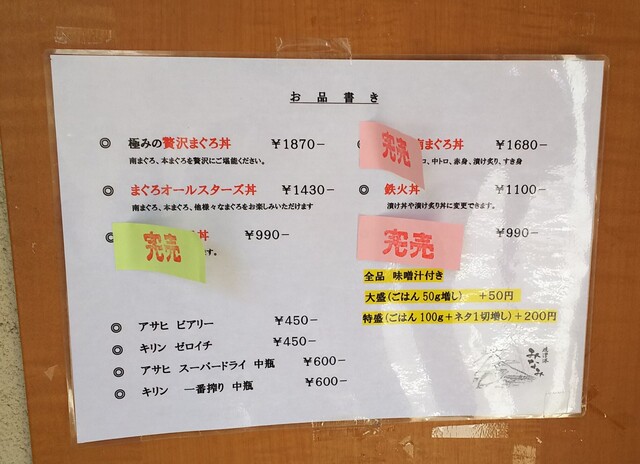 お品書き
◎ 極みの贅沢まぐろ丼 ¥1870−
南まぐろ、本まぐろを贅沢にご堪能ください。
◎ まぐろオールスターズ丼 ¥1430−
南まぐろ、本まぐろ、他様々なまぐろをお楽しみいただけます
完売 丼 ¥990−
す。
完売 南まぐろ丼 ¥1680−
ロ、中トロ、赤身、漬け炙り、すき身
◎ 鉄火丼 ¥1100−
漬け丼や漬け炙り丼に変更できます。
完売 ¥990−
全品 味噌汁付き
大盛(ごはん50g増し) +50円
特盛(ごはん100g+ネタ1切増し)+200円
◎ アサヒ ビアリー ¥450−
◎ キリン ゼロイチ ¥450−
◎ アサヒ スーパードライ 中瓶 ¥600−
◎ キリン 一番搾り 中瓶 ¥600−
みなみ